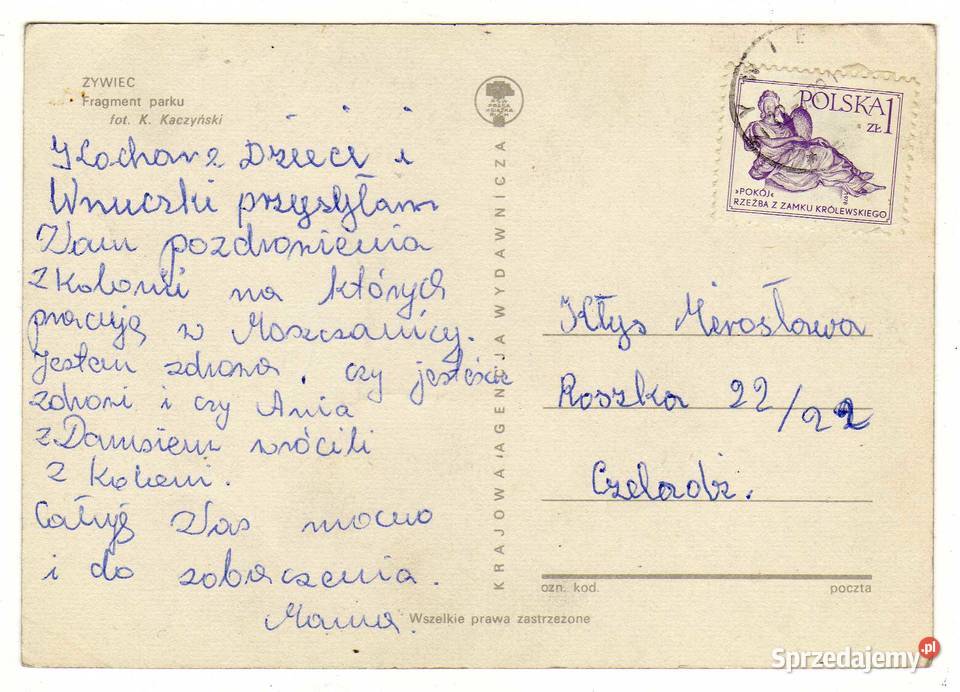 ŻYWIEC
Fragment parku
fot. K. Kaczyński
Kochane Dzieci i
Wnuczki przysyłam
Wam pozdrowienia
z Kolonii na których
pracuję w Moszczanicy.
Jestem zdrowa, czy jesteście
zdrowi i czy Ania
z Damsiem wrócili
z Koloni.
Całuję Was mocno
i do zobaczenia.
Mama.
KRAJOWA AGENCJA WYDAWNICZA
POLSKA 1
ZŁ
»POKÓJ«
RZEŹBA Z ZAMKU KRÓLEWSKIEGO
Kłys Mirosława
Roszka 22/22
Czeladź.
ozn. kod. poczta
Wszelkie prawa zastrzeżone
Sprzedajemy.pl